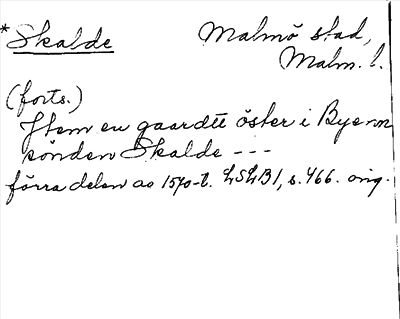 *Skalde Malmö stad,
Malm. l.
(forts.)
Jtem en gaardtt öster i Byenn
sönden Skalde ---
förra delen av 1570-t. LSLB1, s. 466. orig.